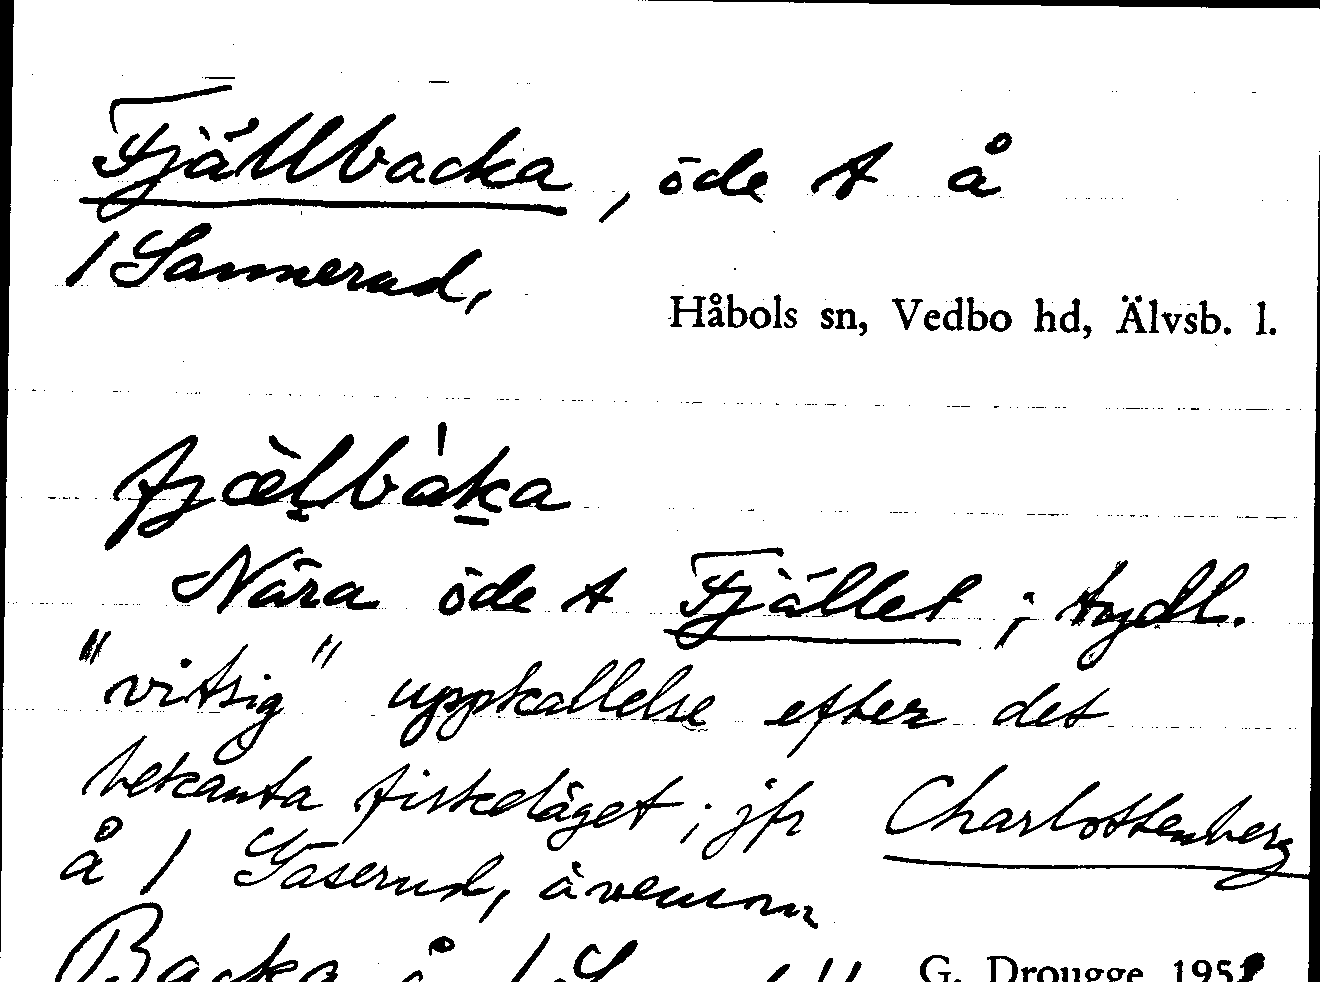 Fjällbacka, öde t å
/ Sannerud,
Håbols sn, Vedbo hd, Älvsb. l.
fjæ̀lbàka
Nära öde t Fjället; tydl.
"vitsig" uppkallelse efter det
bekanta fiskeläget; jfr Charlottenberg
å / Gäserud, ävensom
Backa å /
G. Drougge 195